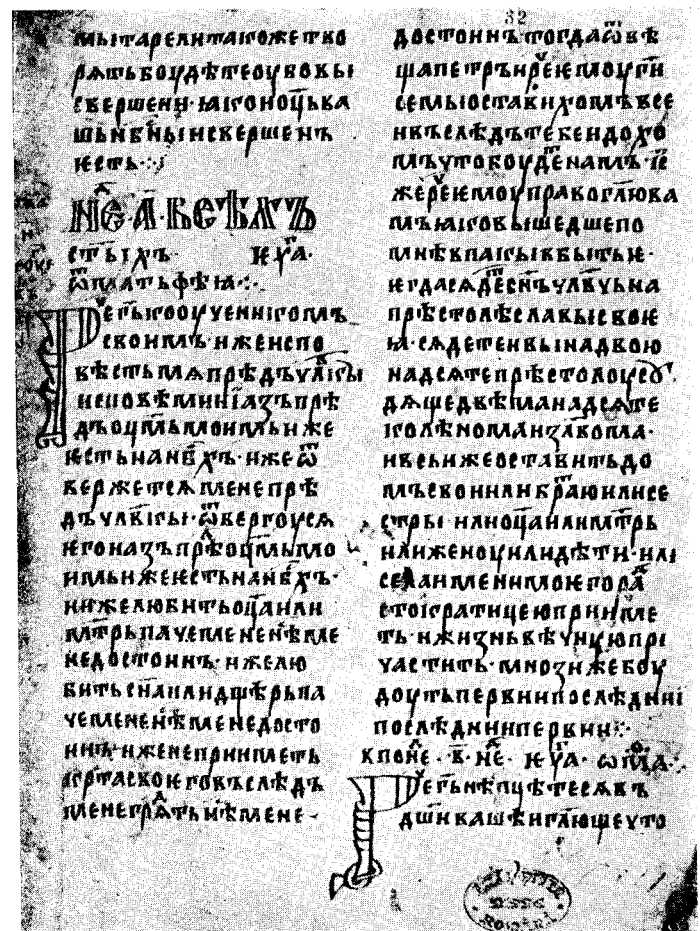 32
мытарелитакожетво
рѧтьбоудѣтеоубовы
свершени·ꙗконоц҃ька
шьнб҃ныисвершенъ
ѥсть·:·
нед҃·а҃·всѣхъ
ст҃ыхъ· ѥуⷢ҇а·
ѿматьфеꙗ·:·
Рег҃ькоученикомъ
своимъ·ижеиспо
вѣстьмѧпрѣдъчл҃вкы
исповѣмииазъпрѣ
дъоц҃мьмоимьиже
ѥстьнанб҃хъ·ижеѿ
вержетсѧменепрѣ
дъчл҃вкы·ѿвергоусѧ
ѥгоиазъпрѣⷣоц҃мьмо
имьижеѥстьнанб҃хъ·
ижелюбитьоц҃аили
мт҃рьпачемененѣⷭ҇мене
недостоинъ·ижелю
битьсн҃аилидщ҃ерьпа
чеменен̑ѣменедосто
инъ·иженеприиметь
крⷭ҇тасвоѥговъслѣдъ
менегрѧⷣтьн̑ѣмене·
достоинътогдаѿвѣ
щапетръиреⷱ҇ѥмоуг҃и
семыоставихомъвсе
ивъслѣдътебеидохо
мъчтобоудеⷮнамъ·іс҃
жереⷱ҇ѥмоуправоглю҃ва
мъꙗковышедшепо
мнѣвпакыбытьѥ·
ѥгдасѧдеⷮсн҃ъчлв҃чьна
прѣстолѣславысвоѥ
ꙗ·сѧдетеивынадвою
надсѧтепрѣстолоусоу
дѧщедвѣманадсѧте
колѣноманзл҃вома·
ивсьижеоставитьдо
мъсвоиилибра҃юилисе
стры·илиоц҃аилимт҃рь
илиженоуилидѣти·или
селаименимоѥгораⷣ
стократицеюприиме
ть·ижизньвѣчнуюпри
частить·мнозижебоу
доутьпервиипослѣднии
послѣдниипервии·:·
кпоне·в҃·неⷣ·ѥуⷢ҇а·ѿм҃а·
Рег҃ьнѣпцѣтесѧвъ
дш҃икашѣигл҃ющечто